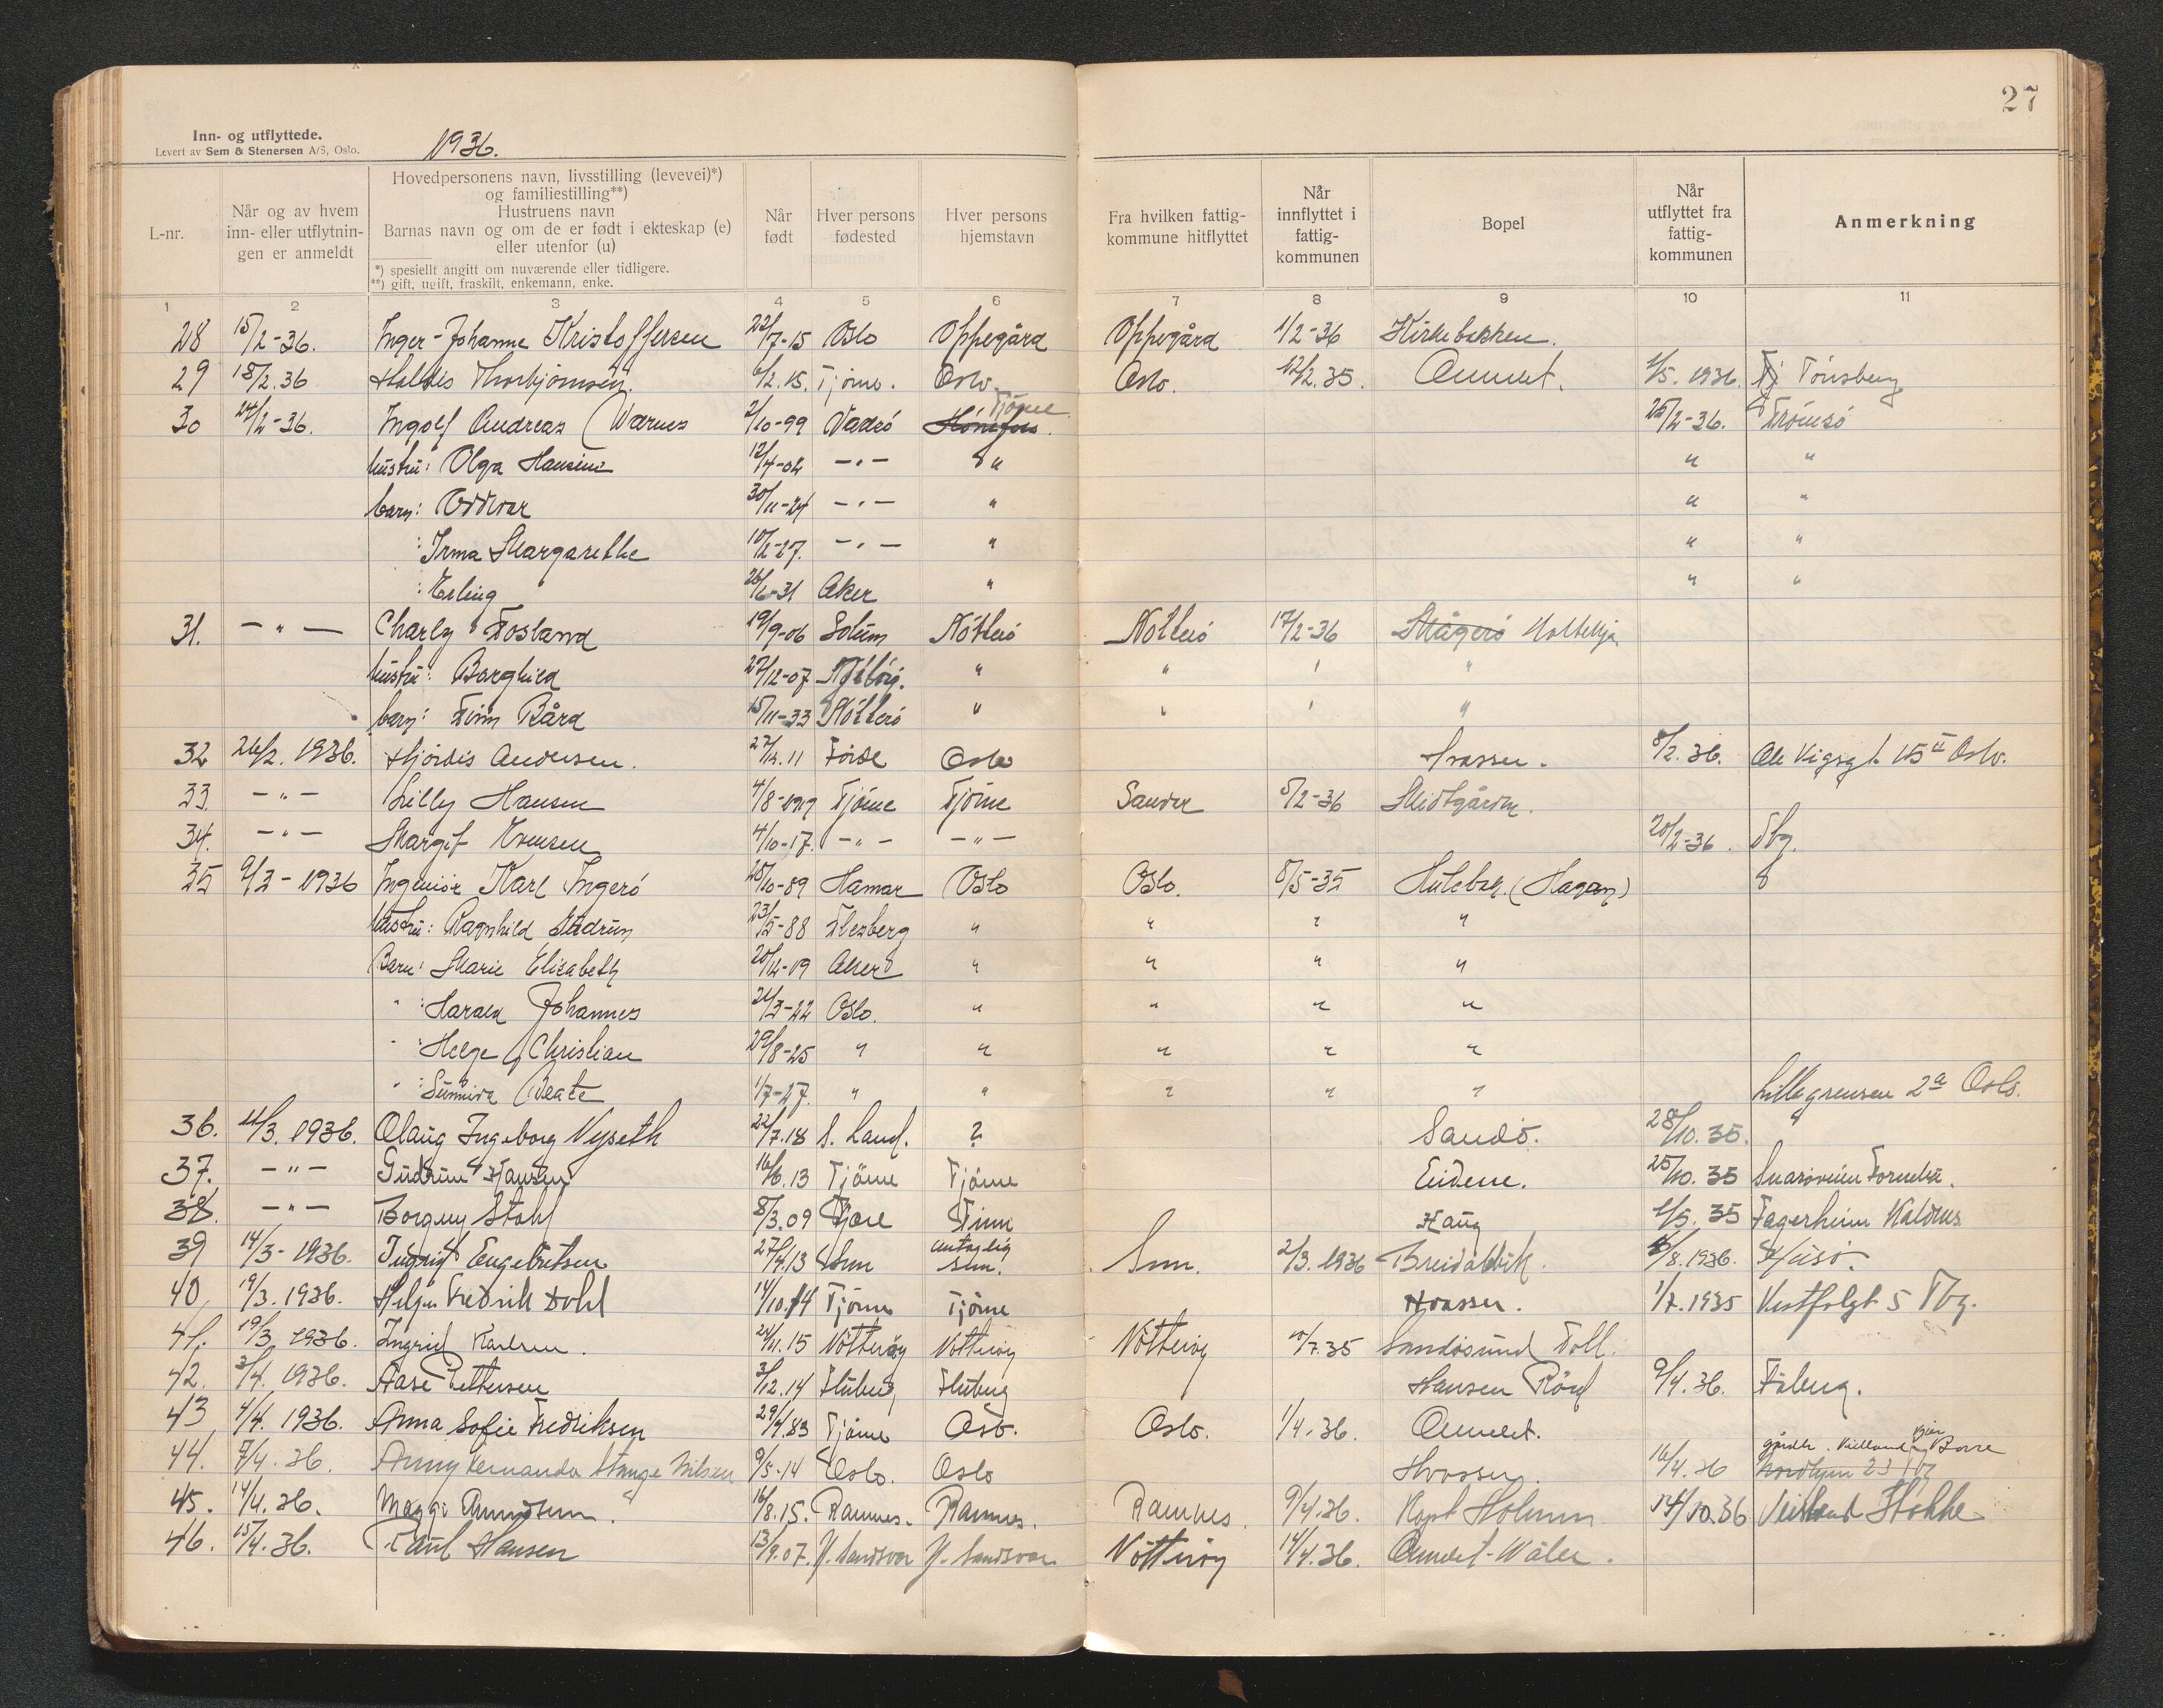 27
Inn- og utflyttede.
Levert av Sem & Stenersen A/S, Oslo.
1936.
L-nr.
Når og av hvem inn- eller utflytnin- gen er anmeldt
Hovedpersonens navn, livsstilling (levevei)*) og familiestilling**)
Hustruens navn
Barnas navn og om de er født i ekteskap (e) eller utenfor (u)
*) spesielt angitt om nuværende eller tidligere.
**) gift, ugift, fraskilt, enkemann, enke.
Når født
Hver persons fødested
Hver persons hjemstavn
Fra hvilken fattig- kommune hitflyttet
Når innflyttet i fattig- kommunen
Bopel
Når utflyttet fra fattig- kommunen
Anmerkning
1 2 3 4 5 6 7 8 9 10 11
28 15/2-36. Inger-Johanne Kristoffersen 22/7-15 Oslo Oppegård Oppegård 1/2-36 Kirkebakken.
29 18/2.36 Haldis Thorbjørnsen. 6/2.15. Tjöme. Oslo. Oslo. 12/2.35. Ormelet. 1/5.1936. Tj Tönsberg
30 24/2-36. Ingolf Andreas Wærnes 2/10-99 Vadsö Hönefoss. Tjöme 25/2-36. Tromsö
hustru: Olga Hansine 12/4-02 -"- " " "
barn: Oddvar 30/11-24 -"- " " "
: Irma Margarethe 10/2-27. -"- " " "
: Erling 26/6-31 Aker " " "
31. -"- Charly Fosland 19/9-06 Solum Nötterö Nötterö 17/2-36 Mågerö Holtekja
hustru: Borghild 27/12-07 " " " "
barn: Finn Bård 15/11-33 Nötterö " " " "
32 26/2.1936. Hjördis Andersen. 27/12.11 Förde Oslo Hvasser. 8/2.36. Ole Vigsgt. 15 II Oslo.
33. -"- Lilly Hansen 4/8-1919 Tjöme Tjöme Sandar 5/2-36 Midtgården.
34. -"- Margit Evensen 4/10-17. -"- -"- 20/2-36. Tbg.
35 9/3-1936 Ingeniör Karl Ingerö 25/10-89 Hamar Oslo Oslo. 8/5-35 Hulebak. (Hagan)
hustru: Ragnhild Gudrun 23/5-88 Flesberg " " " "
Barn: Marie Elisabeth 20/12-19 Aker " " " "
" : Harald Johannes 21/3-22 Oslo. " " " "
" : Helge Christian 29/8-25 " " " " "
" : Sunniva Beate 1/7-27. " " " " " Lillegrensen 2a Oslo.
36. 11/3.1936. Olaug Ingeborg Nyseth 22/7.18 S. Land. ? Sandö. 28/10.35. "
37. -"- Gudrun Hansen 16/6.13 Tjöme Tjöme Eidene. 25/10.35 Snaröveien Fornebu.
38. -"- Borgny Stahl 8/3.09 Haug 1/5.35 Fagerheim Kaldnes
39 14/3-1936. Ingrid Engebretsen 27/4.13 Sem antagelig Sem. Sem. 2/3.1936 Breidablik. 1/8.1936. Husö.
40. 19/3.1936. Fredrik Dohl 14/10.14 Tjöme Tjöme Hvasser. 1/7.1935 Vestfolgt 5 Tbg.
41. 19/3.1936. Ingrid Karlsen. 24/11.15 Nötteröy Nötteröy Nötteröy 10/7.35 Sandösund Toll.
42. 3/4.1936. Aase Pettersen 3/12.14 Hansen Röd 9/4.36.
43 4/4.1936. Anna Sofie Fredriksen 29/4.83 Tjöme Oslo. Oslo. 1/4.36. Ormelet.
44. 7/4.36. Anny Fernanda Stange Nilsen 9/5-14 Oslo. Oslo Hvasser. 16/4.36 Borre
45. 14/4.36. Maggi Amundsen. 16/8.15. Ramnes. Ramnes. Ramnes. 9/4.36. Kapt Holmen 14/10.36 Stokke
46. 15/4.36. Paul Hansen 13/9.07. Y. Sandsvær Y. Sandsvær Nötteröy 14/4.36. Ormelet-Wåler.